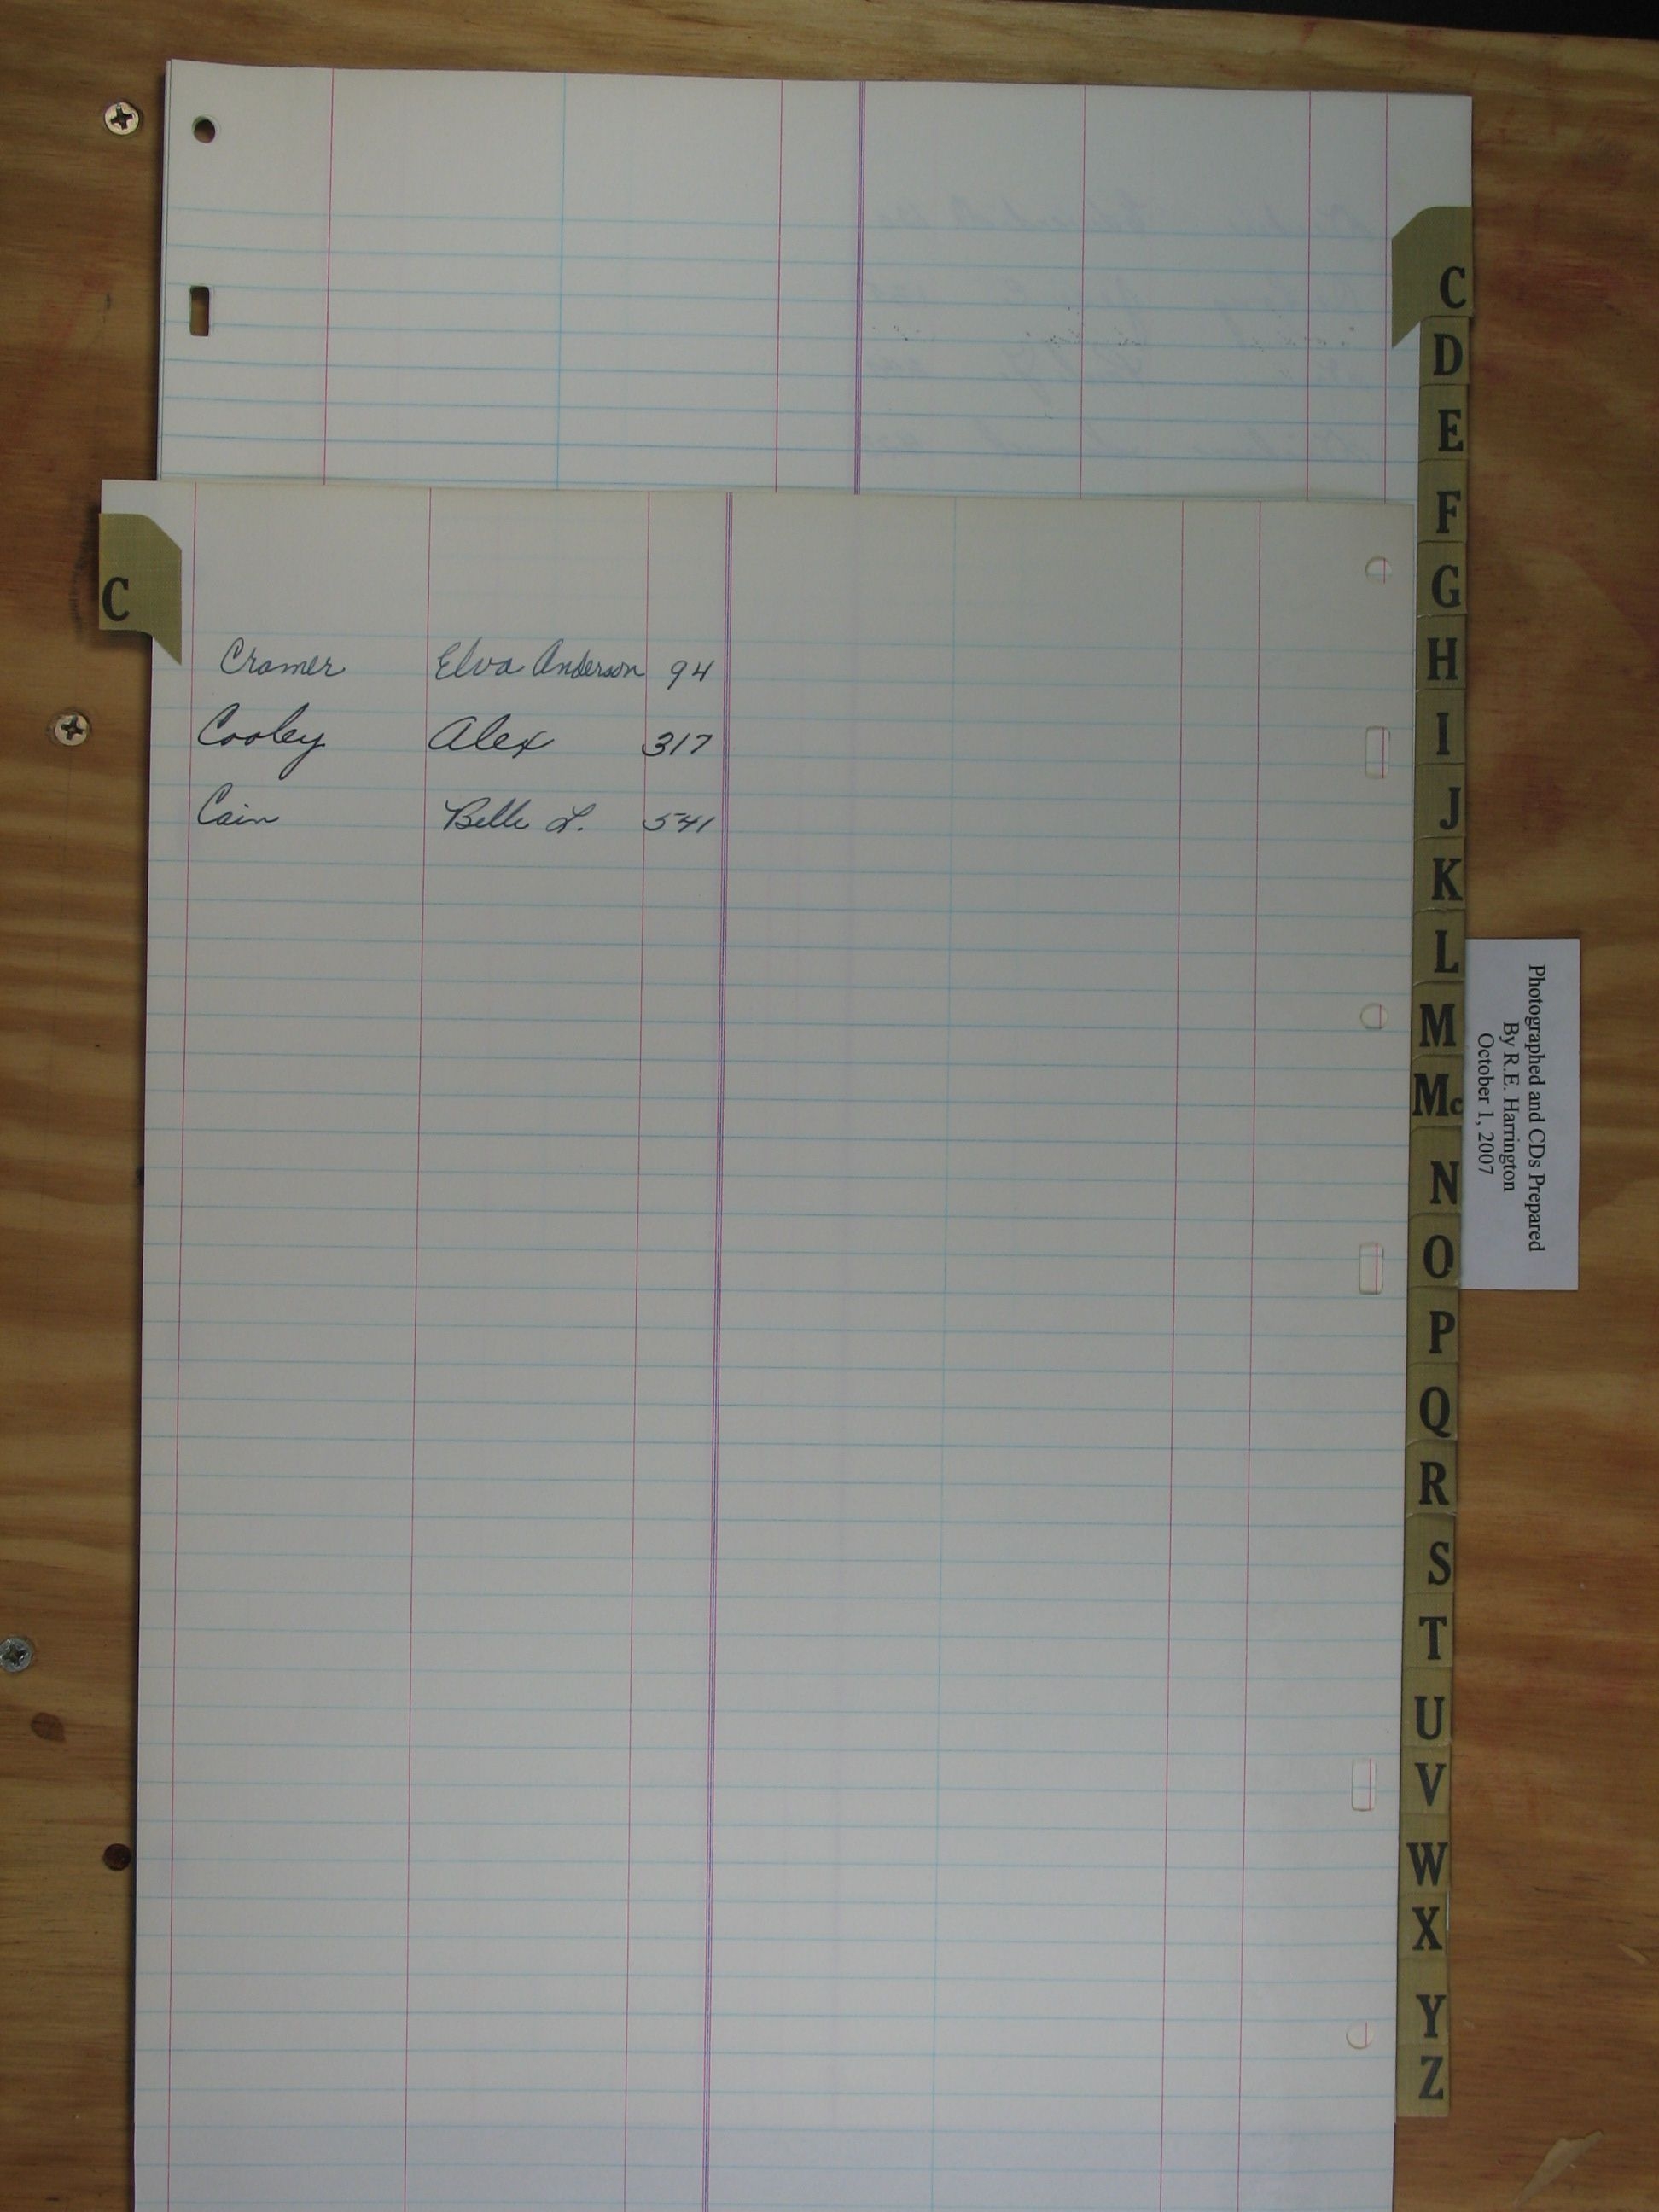 C
Cramer Elva Anderson 94
Cooley Alex 317
Cain Belle L. 541
C
D
E
F
G
H
I
J
K
L
M
Mc
N
O
P
Q
R
S
T
U
V
W
X
Y
Z
Photographed and CDs Prepared
By R.E. Harrington
October 1, 2007